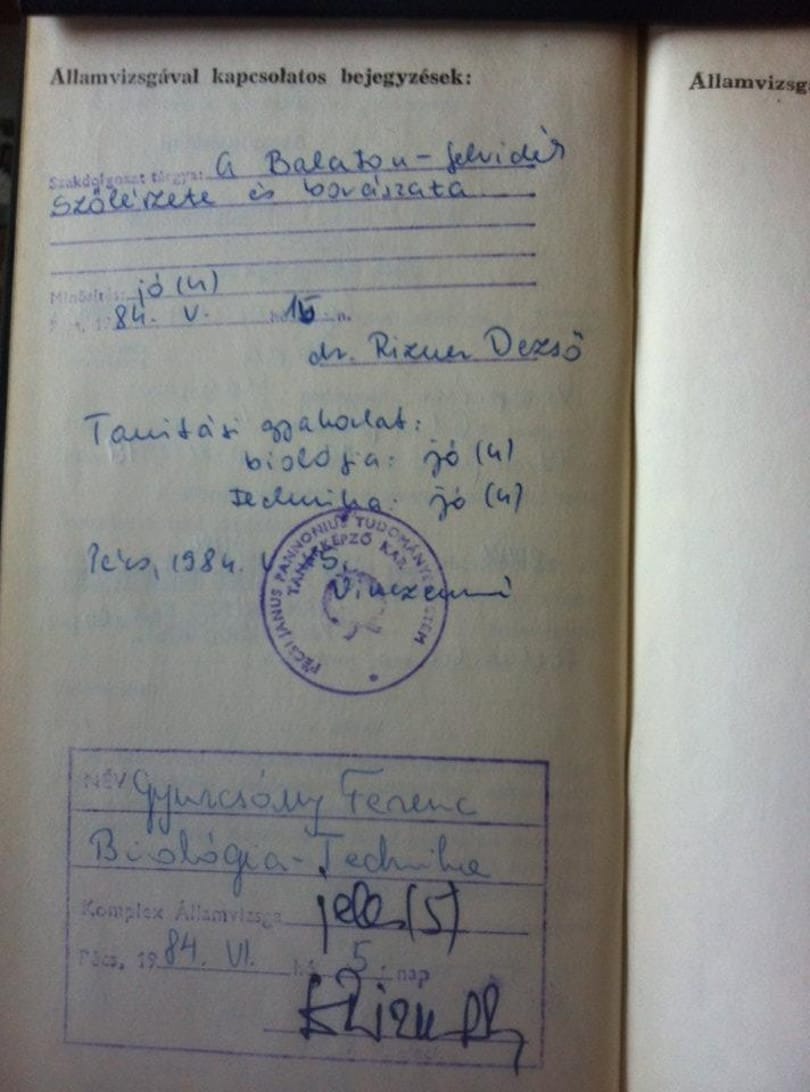 Államvizsgával kapcsolatos bejegyzések:
Államvizsg
Szakdolgozat tárgya: A Balaton-felvidék
szőlészete és borászata
Minősítés: jó (4)
84. V. 15 n.
dr. Rizner Dezső
Tanítási gyakorlat:
biológia: jó (4)
technika: jó (4)
Pécs, 1984. V. 5.
PÉCSI JANUS PANNONIUS TUDOMÁNYEGYETEM
TANÁRKÉPZŐ KAR
NÉV Gyurcsány Ferenc
Biológia-Technika
Komplex Államvizsga jeles (5)
Pécs, 1984. VI. hó 5. nap